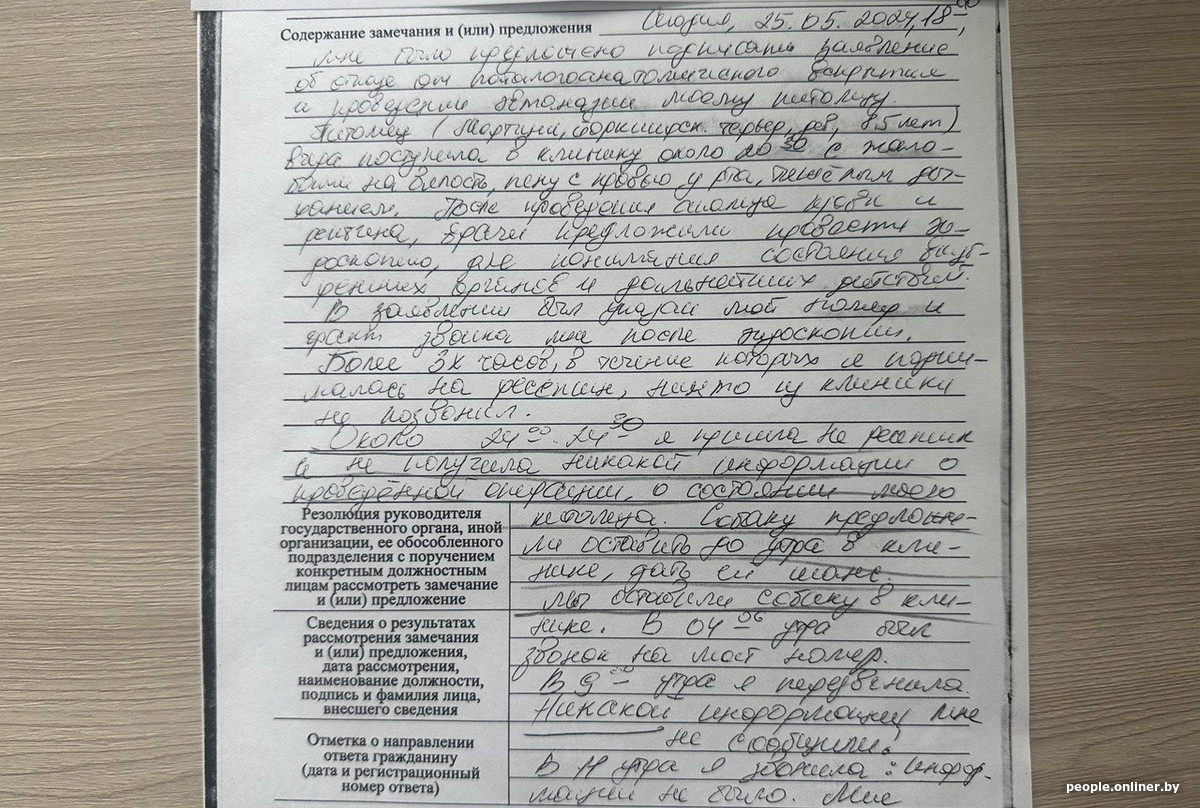 Содержание замечания и (или) предложения Сегодня, 25.05.2024, 18
мне было предложено подписать заявление
об отказе от паталогоанатомического вскрытия
и проведении эвтаназии моему питомцу.
Питомец (Мартини, йоркширск. терьер, 8,5 лет)
вчера поступила в клинику около 20 30 с жало-
бами на вялость, пену с кровью у рта, тяжёлым ды-
ханием. После проведения анализа крови и
рентгена, врачи предложили провести эн-
доскопию, для понимания состояния внут-
ренних органов и дальнейших действий.
В заявлении был указан мой номер и
факт звонка мне после эндоскопии.
Более 3х часов, в течение которых я подни-
малась на ресепшн, никто из клиники
не позвонил.
Около 24 00 - 24 30 я пришла на ресепшн
и не получила никакой информации о
проведённой операции, о состоянии моего
Резолюция руководителя
государственного органа, иной
организации, ее обособленного
подразделения с поручением
конкретным должностным
лицам рассмотреть замечание
и (или) предложение
питомца. Собаку предложи-
ли оставить до утра в кли-
нике, дать ей шанс.
Мы оставили собаку в кли-
Сведения о результатах
рассмотрения замечания
и (или) предложения,
дата рассмотрения,
наименование должности,
подпись и фамилия лица,
внесшего сведения
нике. В 04 06 утра был
звонок на мой номер.
В 9 00 утра я перезвонила.
Никакой информации мне
Отметка о направлении
ответа гражданину
(дата и регистрационный
номер ответа)
не сообщили.
В 11 утра я звонила: инфор-
мации не было. Мне
people.onliner.by